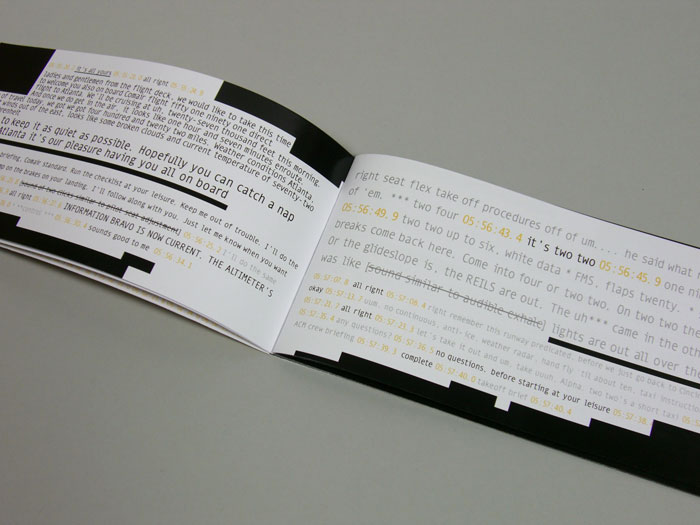 it's all yours all right
ladies and gentlemen from the flight deck, we would like to take this time
to welcome you also on board Comair flight fifty one ninety one direct
flight to Atlanta. We'll be cruising at uh, twenty-seven thousand feet this morning.
And once we get in the air, it looks like one hour and seven minutes enroute.
of travel today, we got we got four hundred and twenty two miles. Weather conditions Atlanta,
winds out of the east, looks like some broken clouds and current temperature of seventy-two
to keep it as quiet as possible. Hopefully you can catch a nap
Atlanta it's our pleasure having you all on board
briefing, Comair standard. Run the checklist at your leisure. Keep me out of trouble. I'll do the
on the brakes on your landing, I'll follow along with you. Just let me know when you want
[sound similar to pilot seat adjustment] I'll do the same
all right INFORMATION BRAVO IS NOW CURRENT, THE ALTIMETER'S
sounds good to me 05:56:34.1
right seat flex take off procedures off of um.... he said what
of 'em. *** two four 05:56:43.4 it's two two 05:56:45.9 one
05:56:49.9 two two up to six. white data * FMS. flaps twenty.
breaks come back here. Come into four or two two. On two two the
Or the glideslope is. the REILS are out. The uh*** came in the
was like [sound similar to audible exhale] lights are out all over the
05:57:07.8 all right 05:57:08.4 right remember this runway predicated. before we just go back to
okay uum. no continuous, anti-ice, weather radar. hand fly 'til about ten. taxi instruct
05:57:21.2 all right 05:57:21.3 let's take it out and um. take yuuh. Alpha. two two's a short taxi
05:57:35.4 any questions? 05:57:36.5 no questions. before starting at your leisure 05:57:38.
ACM crew briefing 05:57:39.3 complete 05:57:40.0 takeoff brief 05:57:40.4